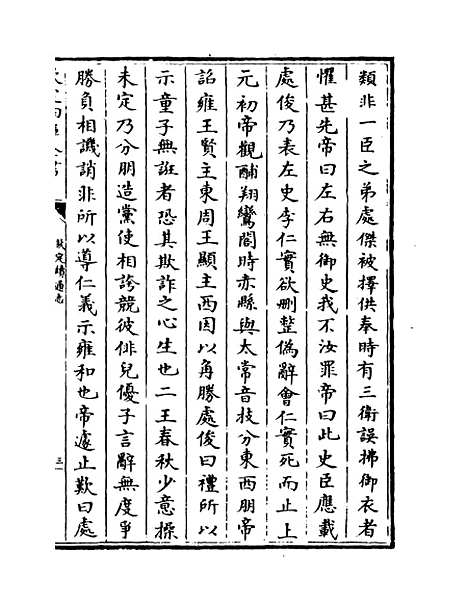 類非一臣之弟處傑被擇供奉時有三衛誤拂御衣者
懼甚先帝曰左右無御史我不汝罪帝曰此史臣應載
處俊乃表左史李仁實欲刪整偽辭會仁實死而止上
元初帝觀酺翔鸞閣時赤縣與太常音技分東西朋帝
詔雍王賢主東周王顯主西因以角勝處俊曰禮所以
示童子無誑者恐其欺詐之心生也二王春秋少意操
未定乃分朋造黨使相誇競彼俳兒優子言辭無度爭
勝負相譏誚非所以導仁義示雍和也帝遽止歎曰處
欽定續通志